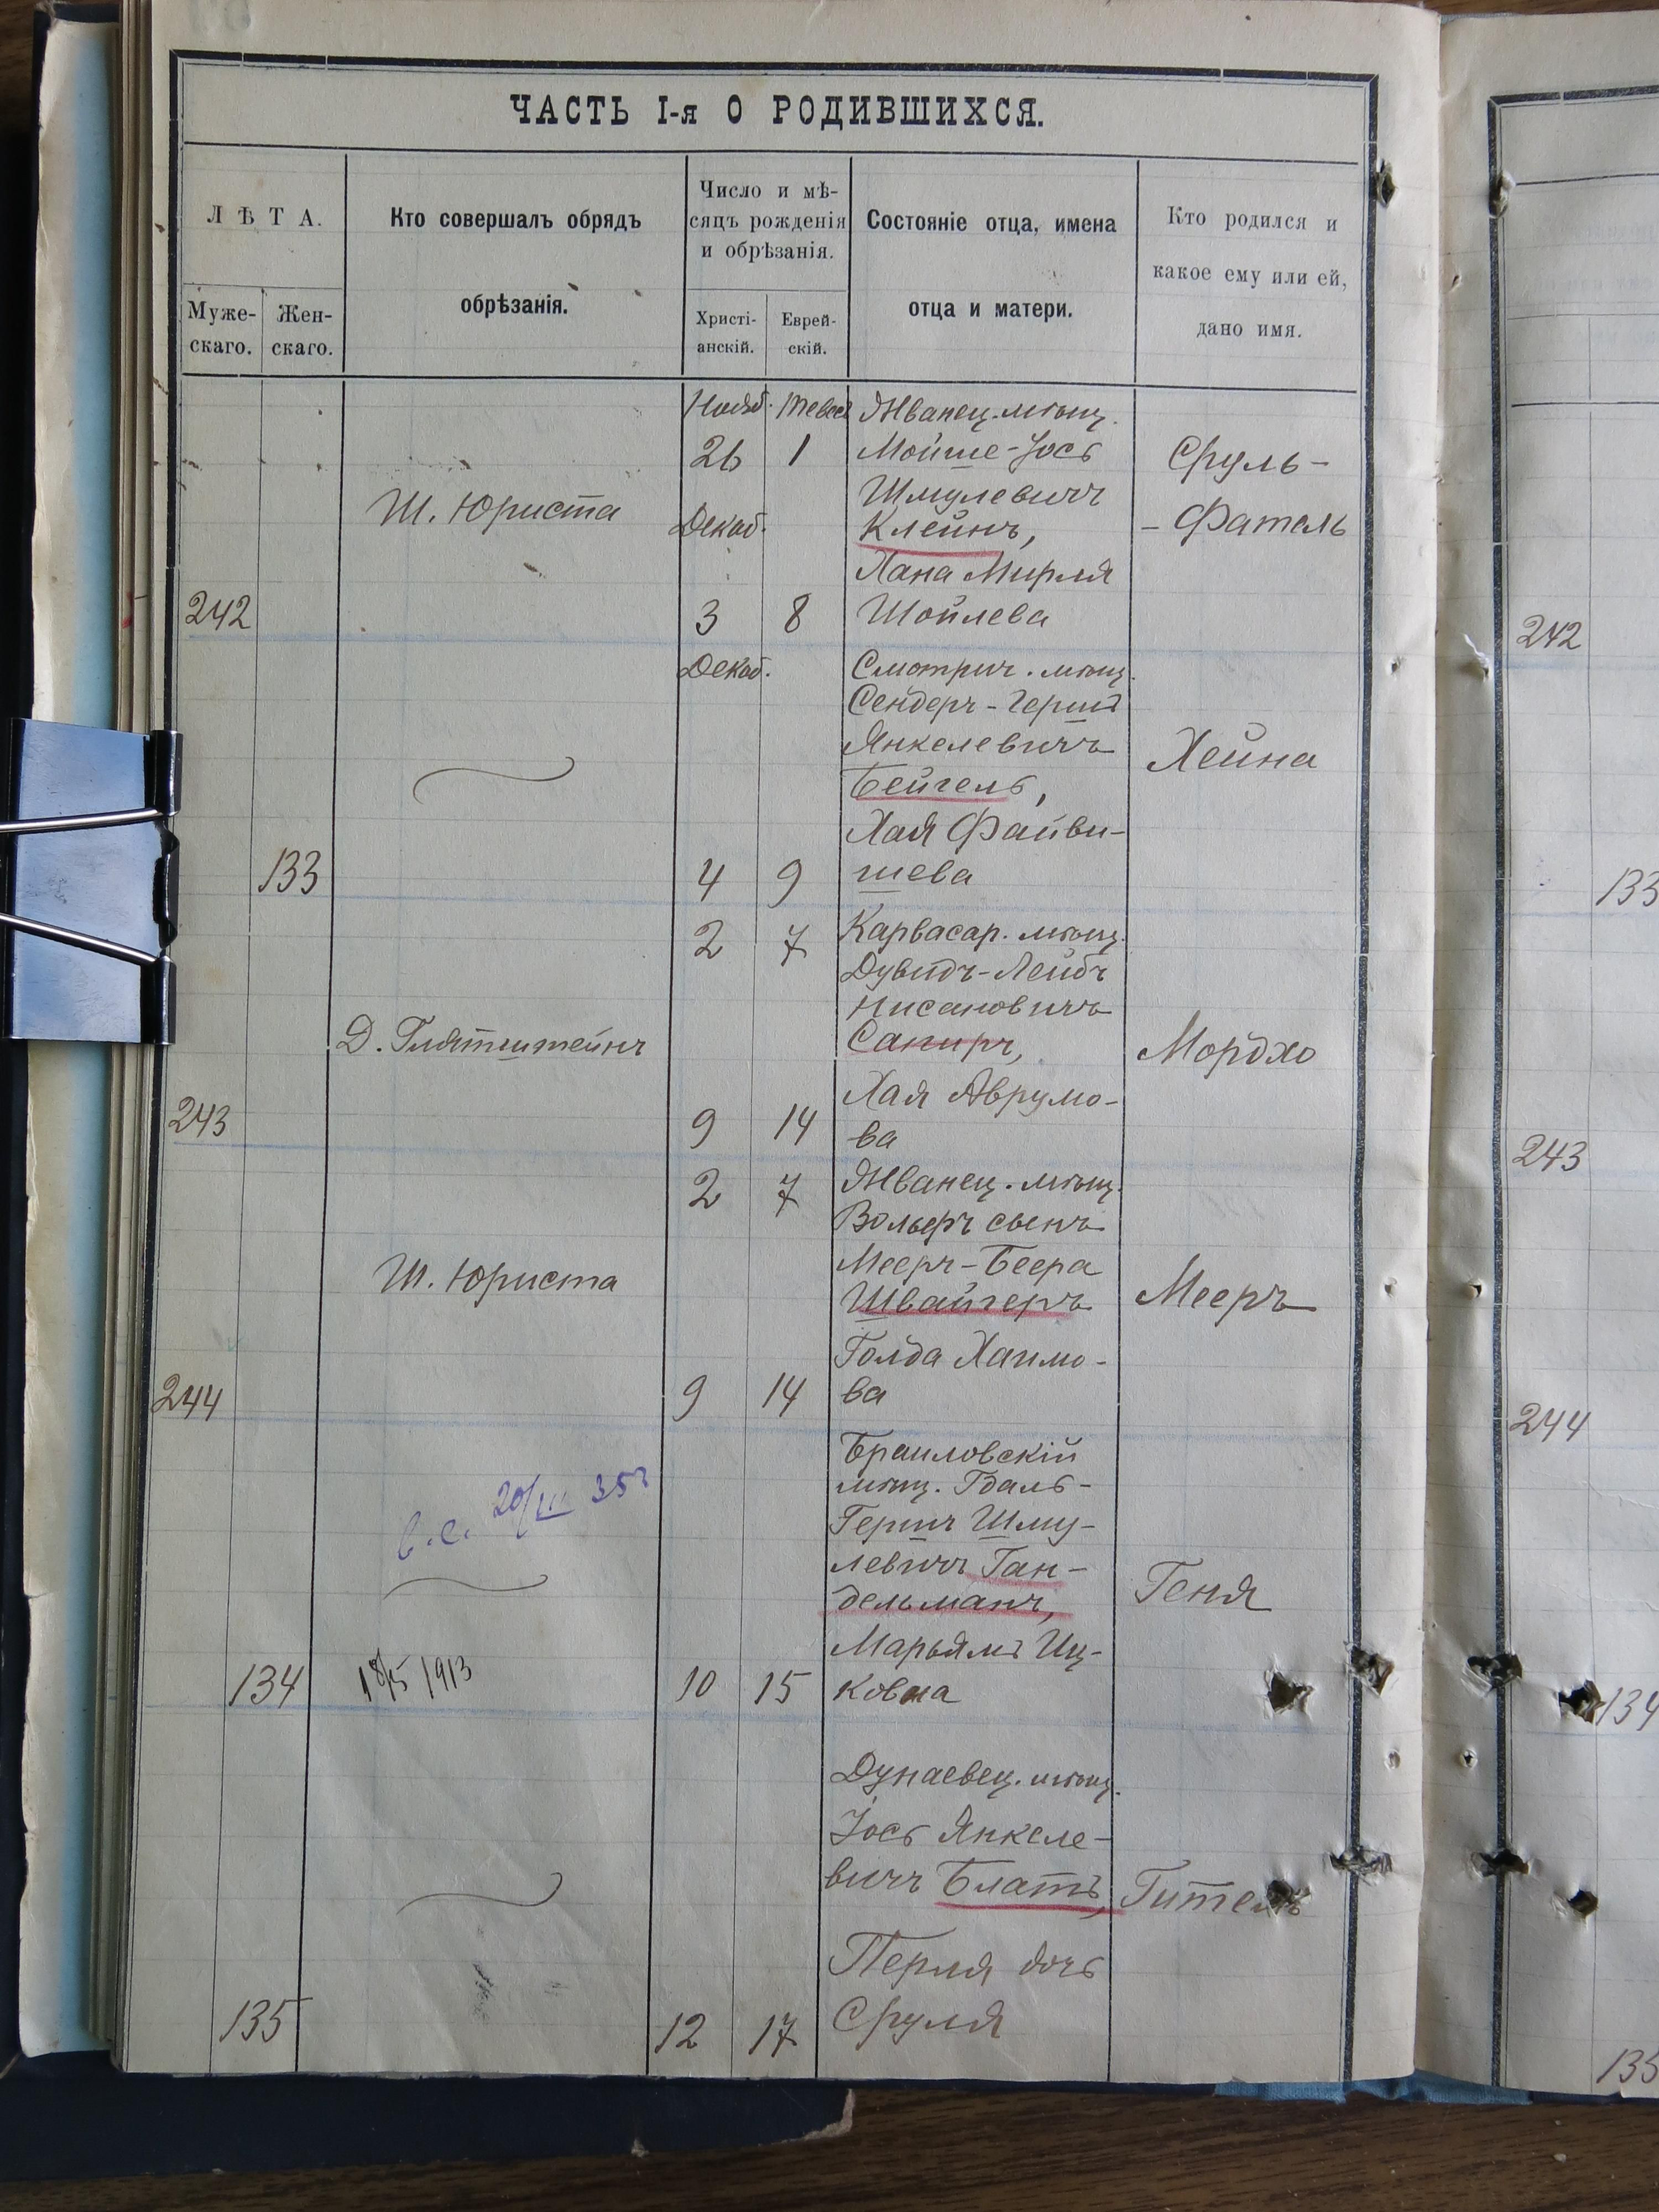 ЧАСТЬ I-я О РОДИВШИХСЯ.
ЛѢТА.
Муже-
скаго.
Жен-
скаго.
Кто совершалъ обрядъ
обрѣзанія.
Число и мѣ-
сяцъ рожденія
и обрѣзанія.
Христі-
анскій.
Еврей-
скій.
Состояніе отца, имена
отца и матери.
Кто родился и
какое ему или ей,
дано имя.
242
Ш. Юриста
Нояб.
26 1
Декаб.
3 8
Жванец. мѣщ.
Мойше-Іось
Шмулевичъ
Клейнъ,
Хана Мирля
Шойлева
Сруль-
-Фатель
133
Декаб.
4 9
Смотрич. мѣщ.
Сендеръ-Гершъ
Янкелевичъ
Бейгель,
Хая Файви-
шева
Хейна
243
Д. Глятштейнъ
2 7
9 14
Карвасар. мѣщ.
Дувидъ-Лейбъ
Нисановичъ
Сапиръ,
Хая Аврумо-
ва
Мордхо
244
Ш. Юриста
2 7
9 14
Жванец. мѣщ.
Вольфъ сынъ
Мееръ-Беера
Швайгеръ
Голда Хаимо-
ва
Мееръ
134
18/5 1913
10 15
Браиловскій
мѣщ. Гдаль-
Гершъ Шму-
левичъ Ган-
дельманъ,
Марьямъ Иц-
ковна
Геня
135
12 17
Дунаевец. мѣщ.
Іось Янкеле-
вичъ Блатъ,
Перля дочь
Сруля
Гитель
242
133
243
244
134
135